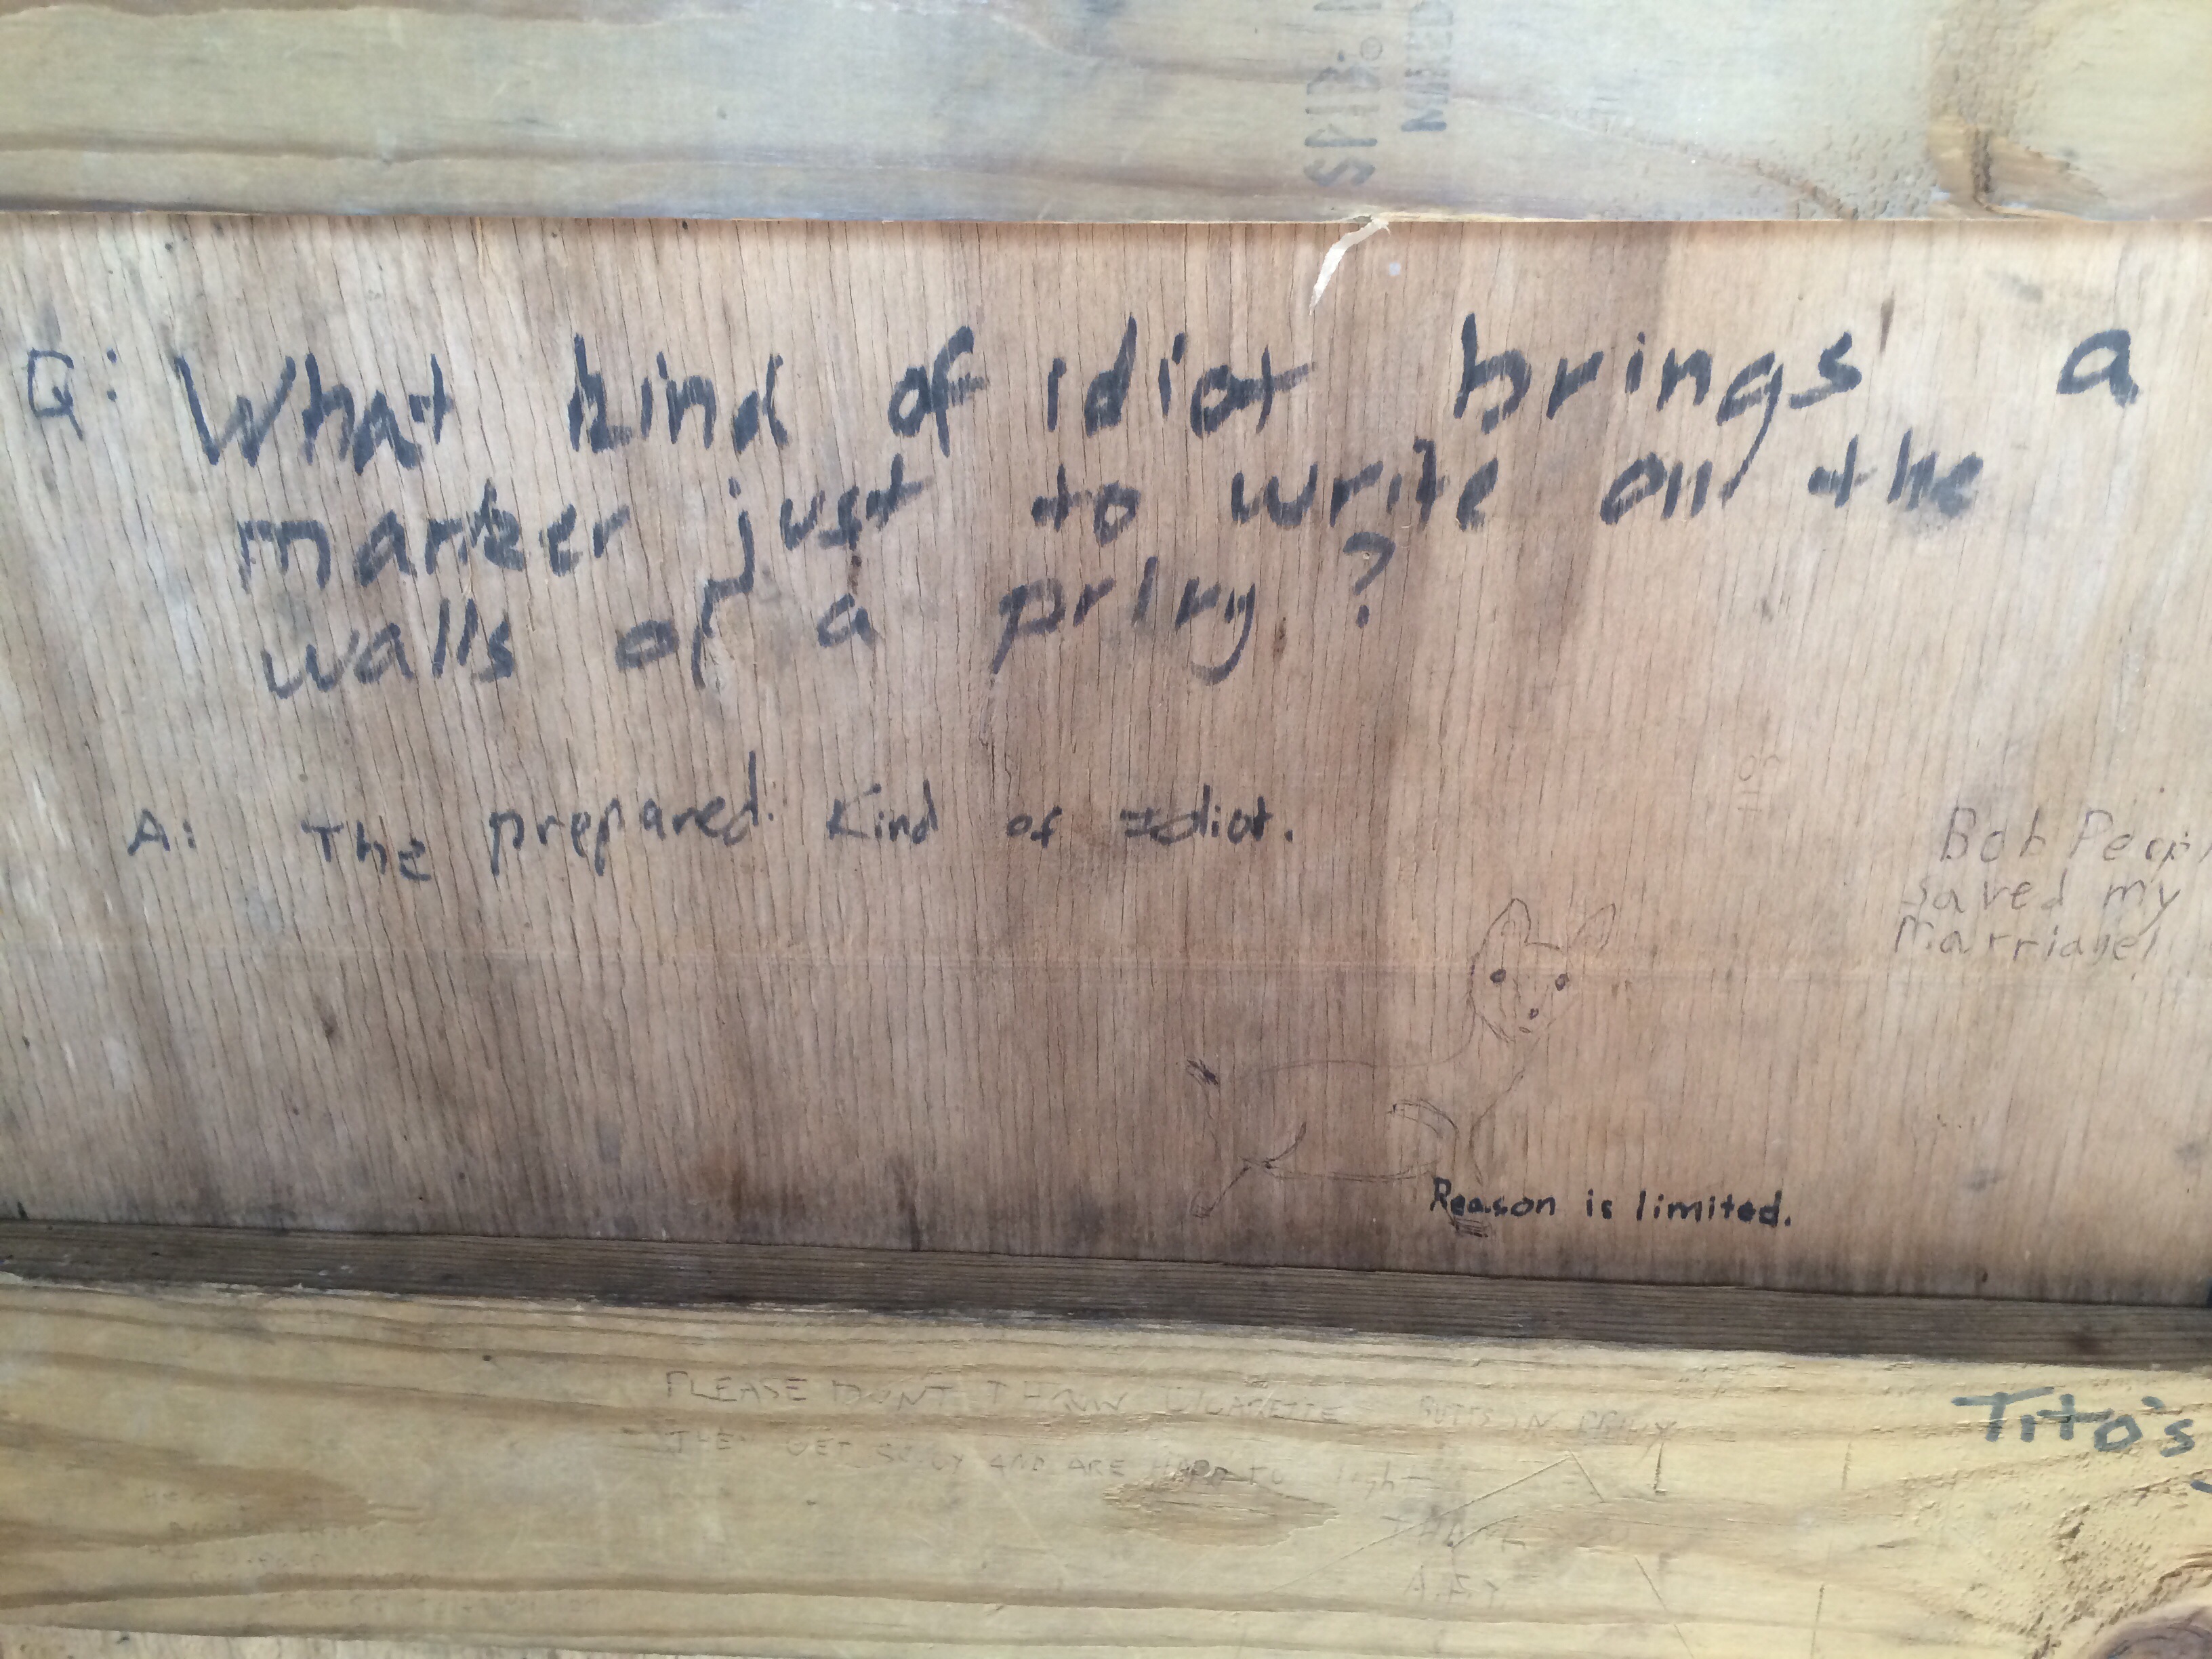 SPIB:
Q: What kind of idiot brings a
marker just to write on the
walls of a privy?
A: The prepared kind of Idiot.
Bob
saved my
Marriage!
Reason is limited.
PLEASE DON'T THROW CIGARETTE BUTTS IN PRIVY
GET SOGGY AND ARE HARD TO light
THANK
Tito's